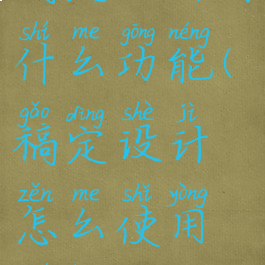 shí me gōng néng
什么功能(
gǎo dìng shè jì
稿定设计
zěn me shǐ yòng
怎么使用